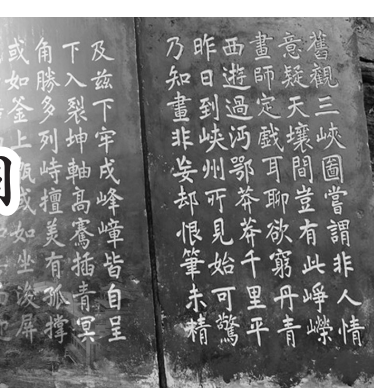 舊觀三峽圖嘗謂非人情
意疑天壤間豈有此崢嶸
畫師定戲耳聊欲窮丹青
西遊過沔鄂莽莽千里平
昨日到峽州所見始可驚
乃知畫非妄却恨筆未精
及茲下牢戍峰嶂皆自呈
下入裂坤軸高騫插青冥
角勝多列峙擅美有孤撐
或如釜上或如坐後屏